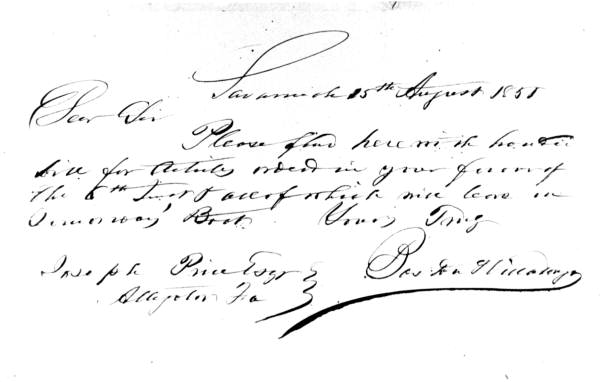 Savannah 15th August 1851
Dear Sir
Please find herewith handed
bill for Articles ordered in your favor of
the 6th Inst all of which will leave in
Tomorrows Boat. Yours Truly
Joseph Price Esqr
Alligator Fa